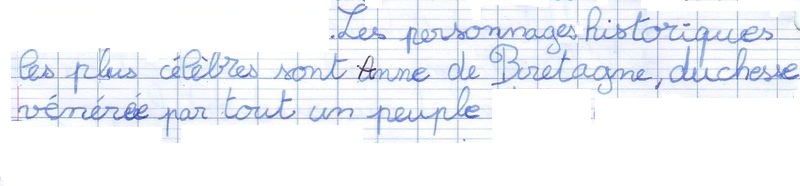 Les personnages historiques
les plus célèbres sont Anne de Bretagne, duchesse
vénérée par tout un peuple